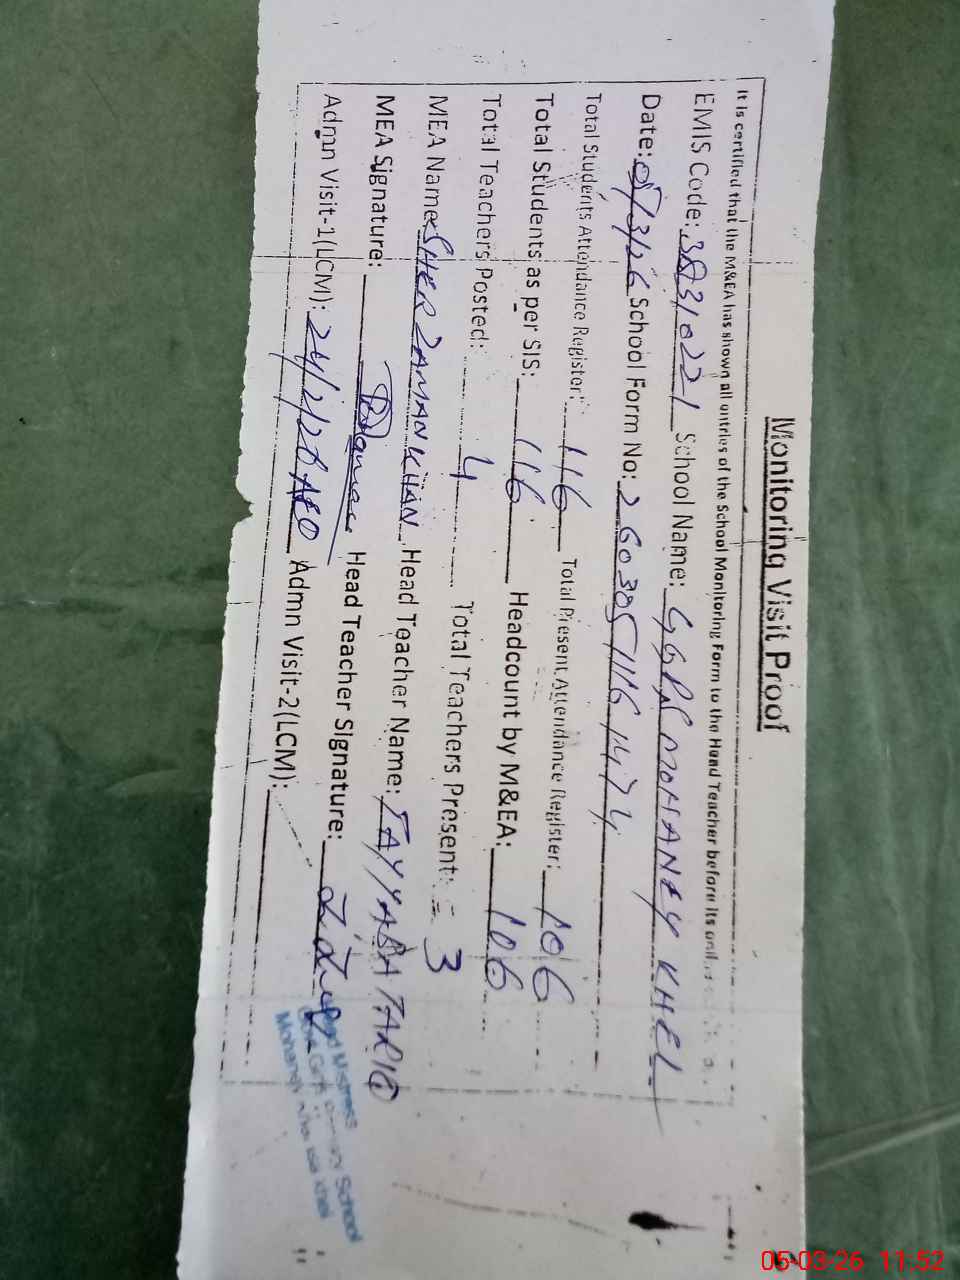 Monitoring Visit Proof
It is certified that the M&EA has shown all entries of the School Monitoring Form to the Head Teacher before its
EMIS Code: 38310221 School Name: GGPS MOHANEY KHEL
Date: 05/3/26 School Form No: 2603051116
Total Students Attendance Register: 116 Total Present Attendance Register: 106
Total Students as per SIS: 116 Headcount by M&EA: 106
Total Teachers Posted: 4 Total Teachers Present: 3
MEA Name: SHER ZAMAN KHAN Head Teacher Name: TAYYABA TARIQ
MEA Signature: Head Teacher Signature:
Admn Visit-1(LCM): 24/2/26 AEO Admn Visit-2(LCM):
Head Mistress
Govt Girls Primary School
Khel Isa Khel
05-03-26 11:52